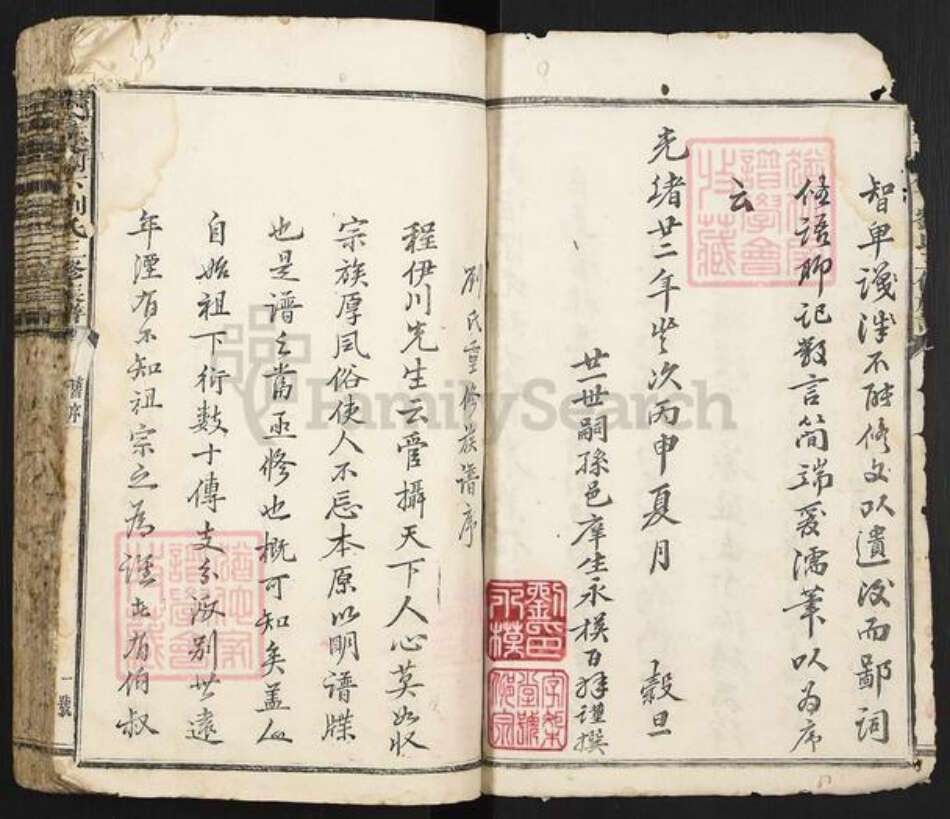 智卑謭淺不能修文以遺後而鄙詞
俚語聊記数言簡端爰濡筆以為序
云
光緒廿二年歲次丙申夏月 穀旦
廿一世嗣孫邑庠生永模百拜謹撰
劉印永模
字架堂號
劉氏重修族譜序
程伊川先生云管攝天下人心莫如收
宗族厚風俗使人不忘本原以明譜牒
也是谱之當亟修也概可知矣盖人
自始祖下衍数十傳支分派别世遠
年湮有不知祖宗之為誰者有伯叔
劉氏三修族譜
舊序
一號
FamilySearch